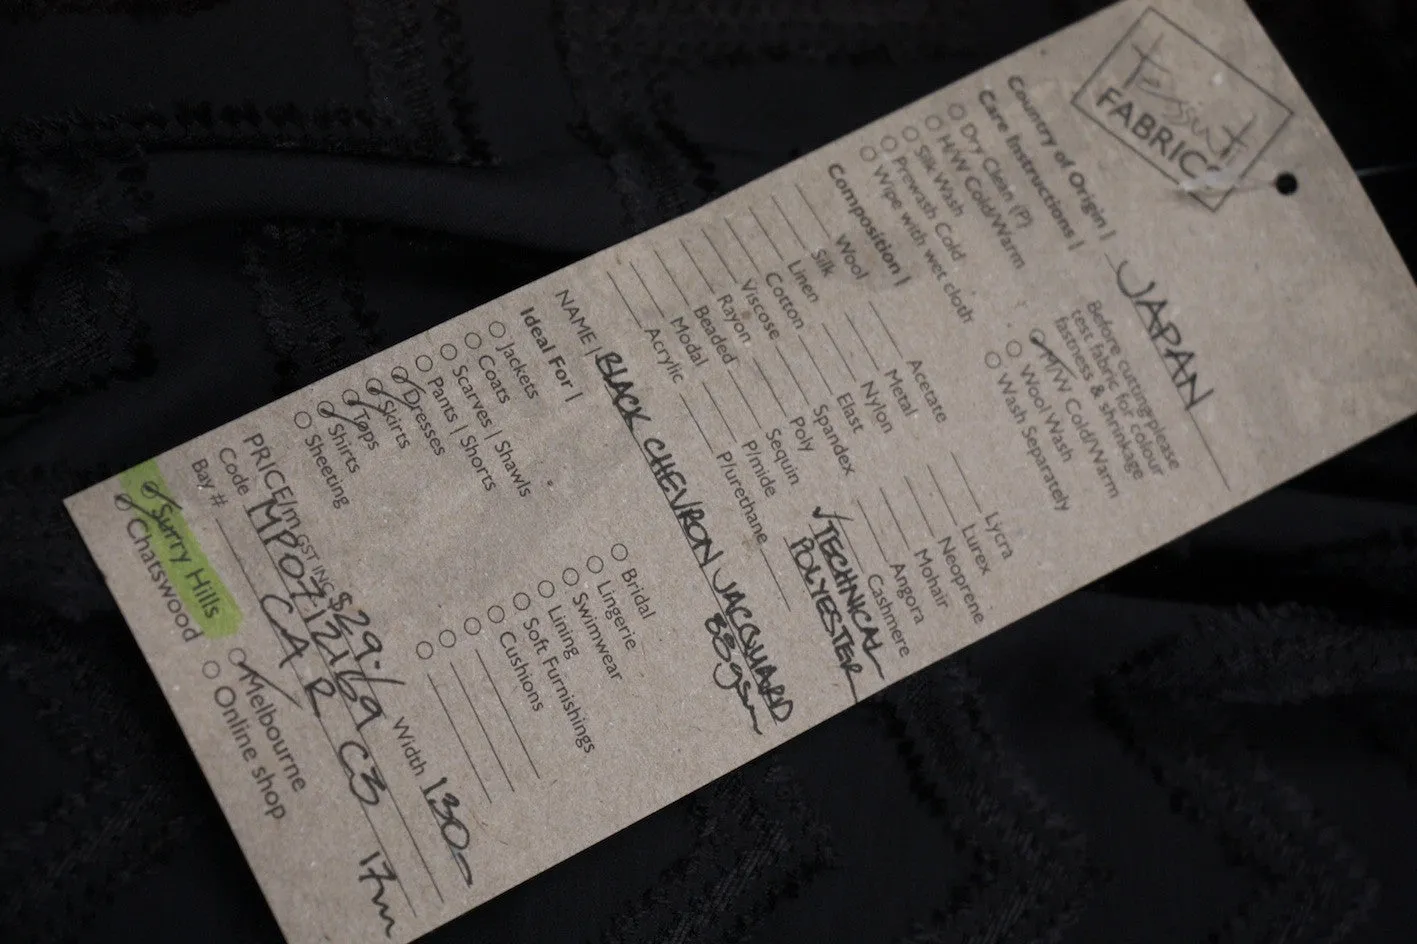 Tessuti
FABRICS
Country of Origin | JAPAN
Care Instructions |
Dry Clean (P)
H/W Cold/Warm
Silk Wash
Prewash Cold
Wipe with wet cloth
Before cutting please
test fabric for colour
fastness & shrinkage
M/W Cold/Warm
Wool Wash
Wash Separately
Composition |
Wool
Silk
Linen
Cotton
Viscose
Rayon
Beaded
Modal
Acrylic
Acetate
Metal
Nylon
Elast
Spandex
Poly
Sequin
P/mide
P/urethane
Lycra
Lurex
Neoprene
Mohair
Angora
Cashmere
✓TECHNICAL
POLYESTER
NAME | BLACK CHEVRON JACQUARD
Ideal For |
Jackets
Coats
Scarves | Shawls
Pants | Shorts
Dresses
Skirts
Tops
Shirts
Sheeting
Bridal
Lingerie
Swimwear
Lining
Soft Furnishings
Cushions
PRICE/m GST INC $29.- Width 130-
Code MP0712169
Bay # CA R C3 17m
Surry Hills
Chatswood
Melbourne
Online shop